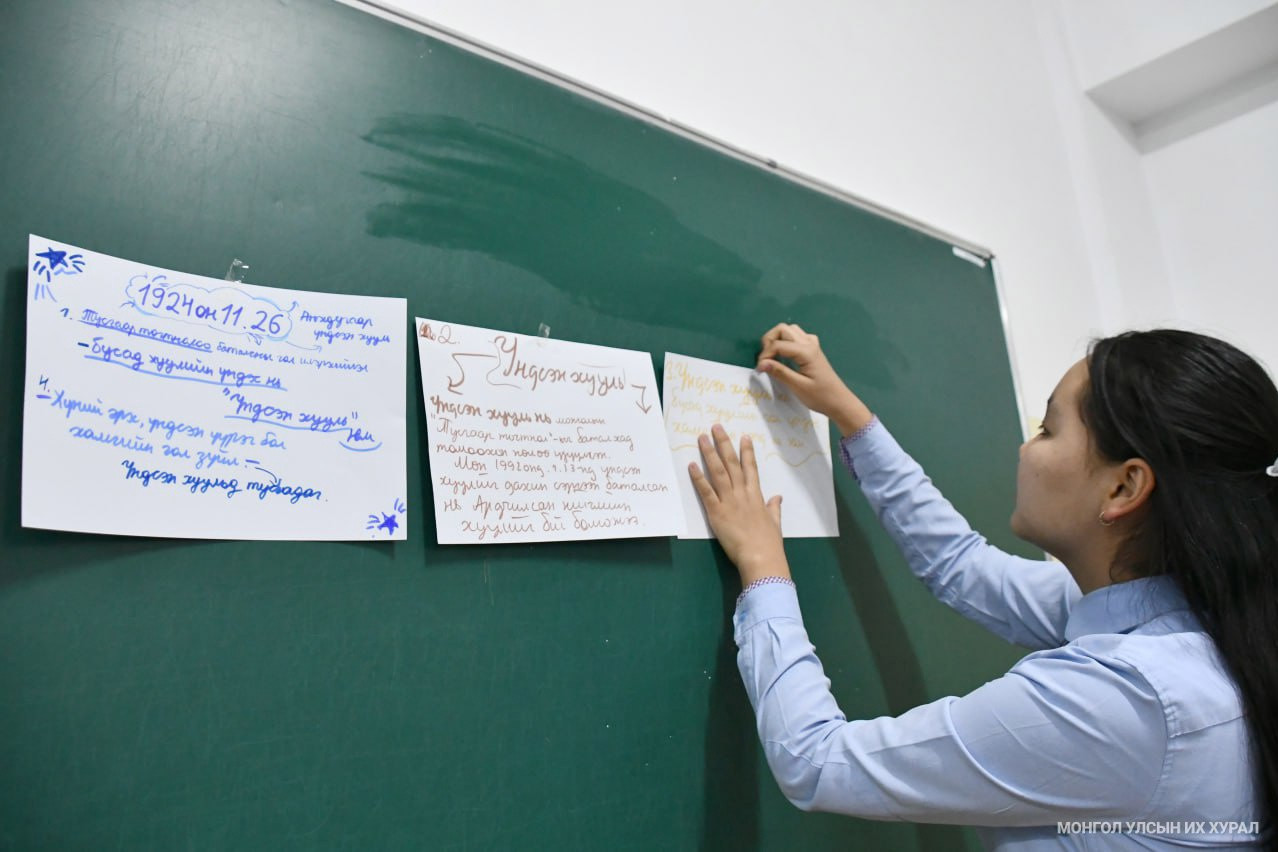 1924 он 11.26
Анхдугаар
үндсэн хууль
1. Тусгаар тогтнолоо баталсны гол
– Бусад хуулийн үндэс нь
"Үндсэн хууль"
юм
4. Хүний эрх, үндсэн үүрэг бол
хамгийн гол зүйл. –
Үндсэн хуульд тусгадаг.
2. Үндсэн хууль!
Үндсэн хууль нь монголын
"Тусгаар тогтнол"-ыг батлахад
томоохон нөлөө үзүүлсэн.
Мөн 1992 онд 1.13-нд үндсэн
хуулийг дахин баталсан
нь Ардчилсан нийгмийн
хуулийг бий боложээ.
Үндсэн хууль
бусад хуулийн
МОНГОЛ УЛСЫН ИХ ХУРАЛ